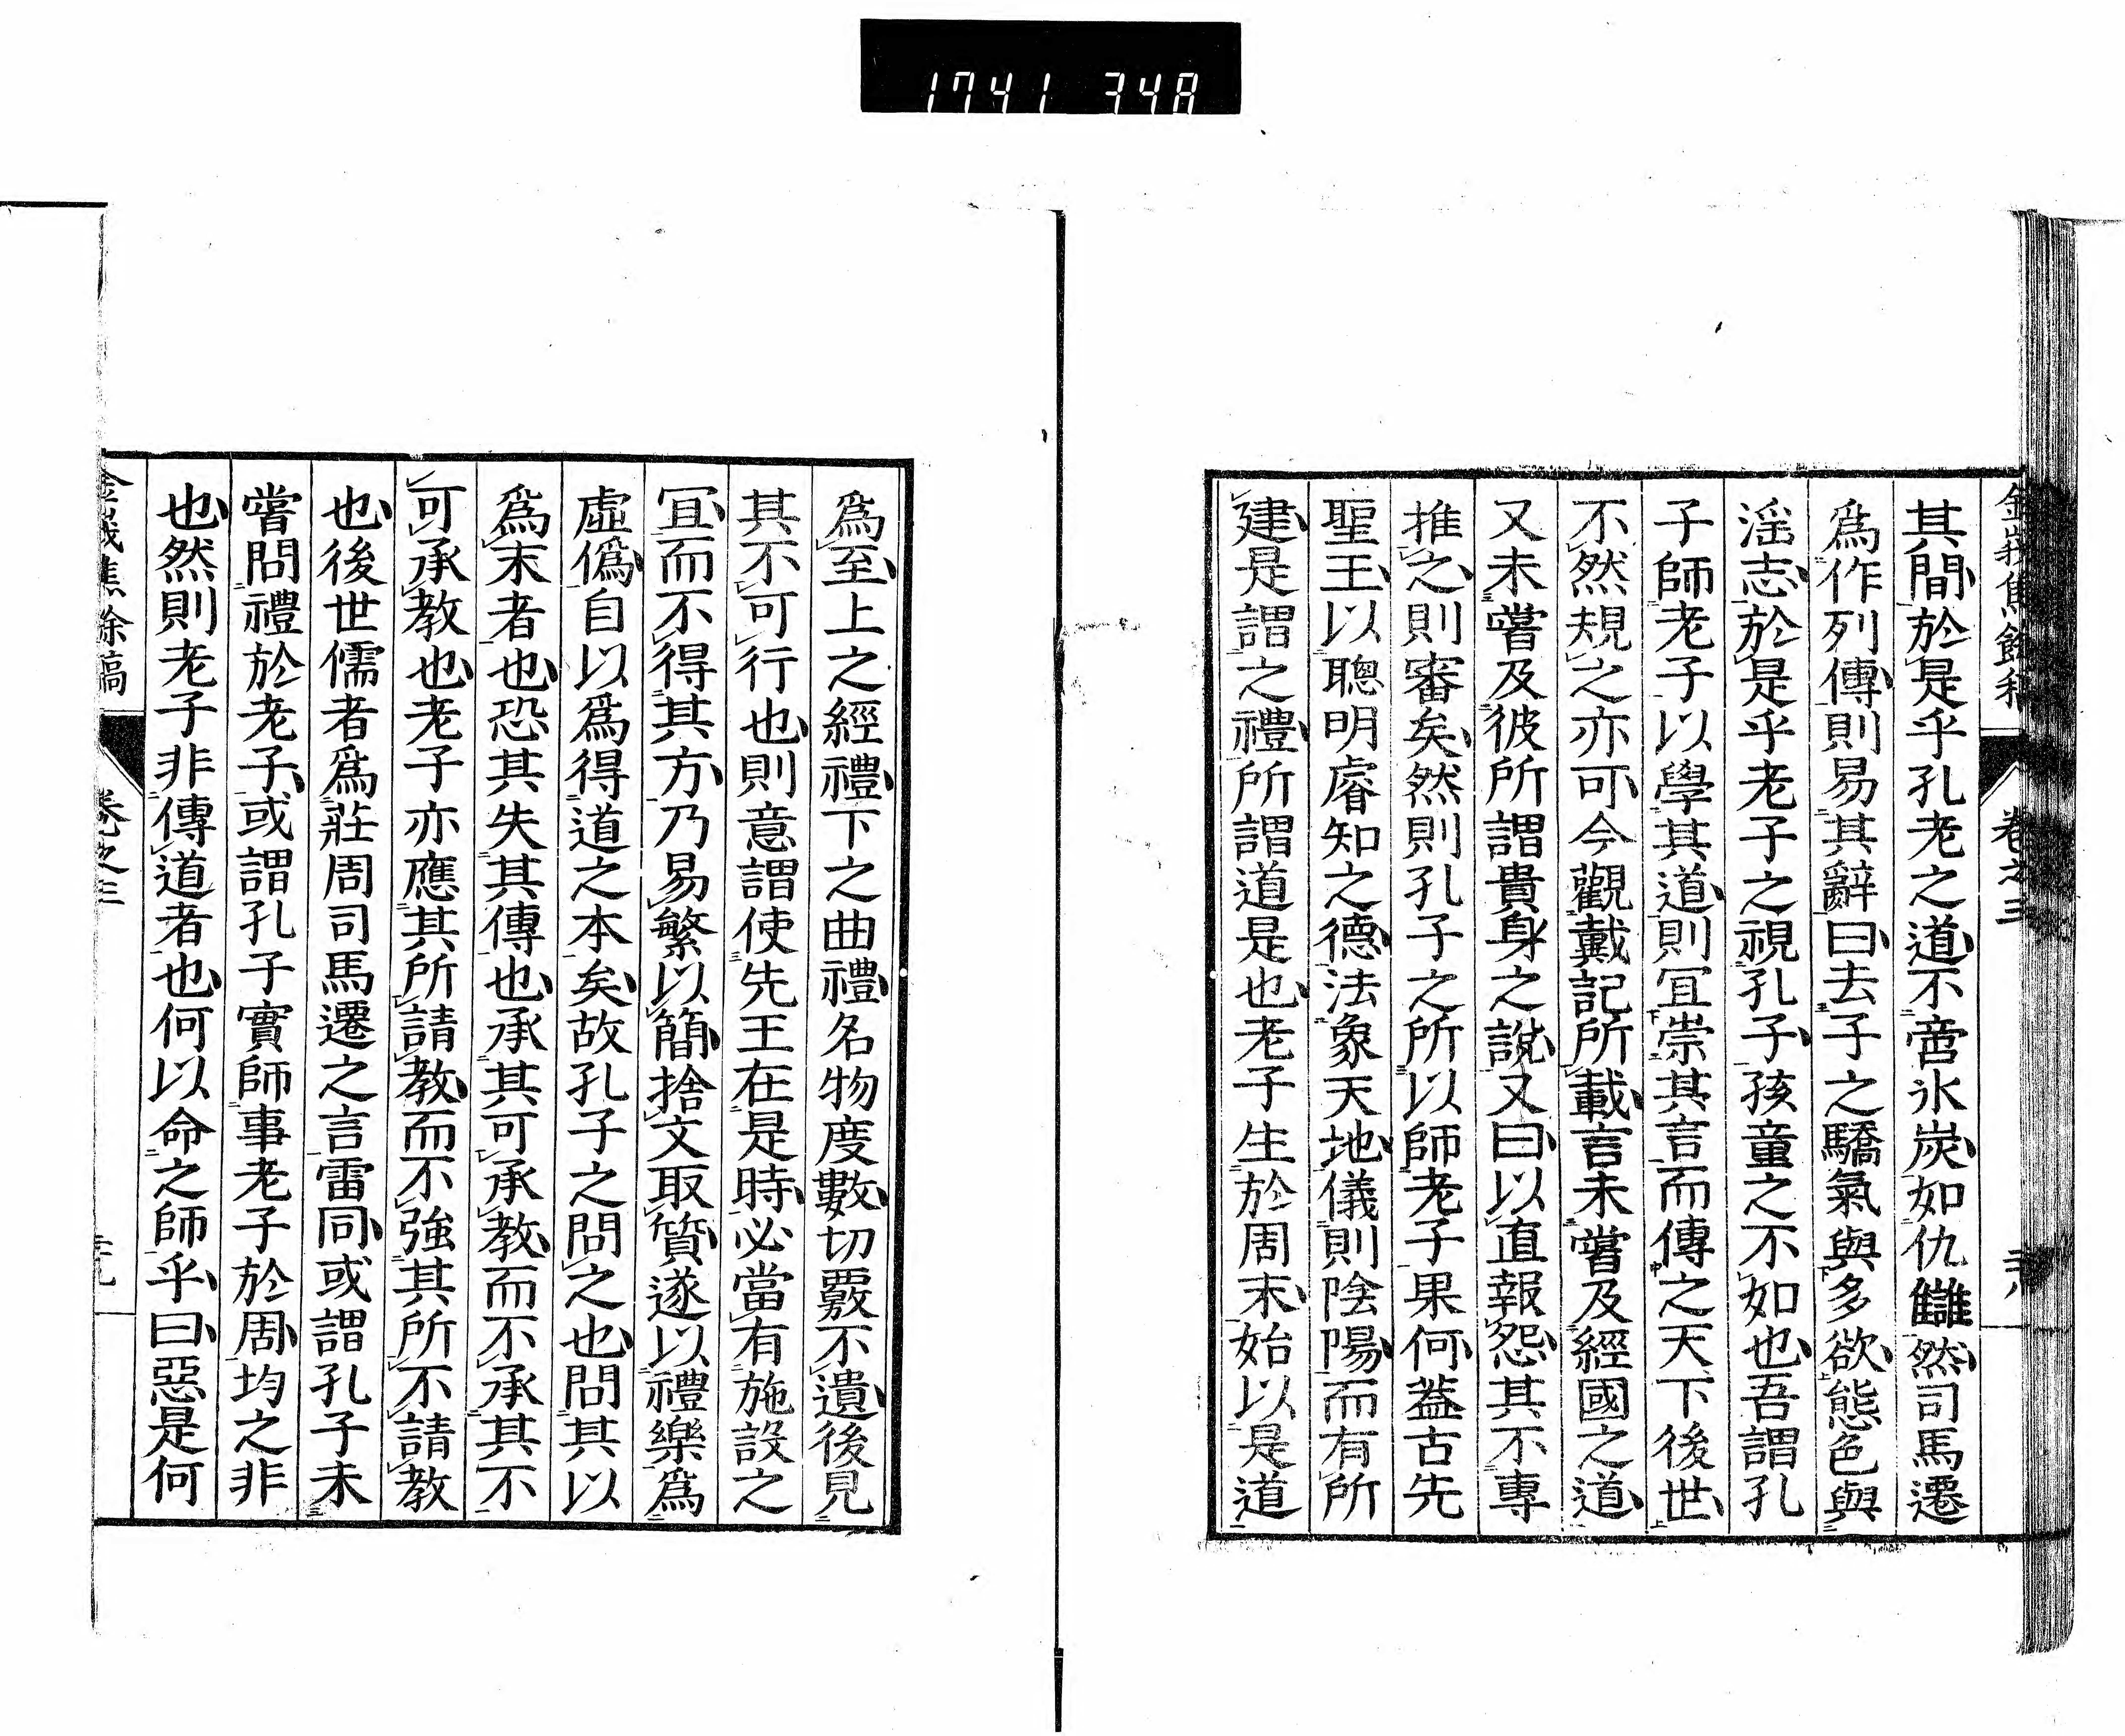 1741 348
金峩焦餘稿 卷之三
其間於是乎孔老之道不啻氷炭如仇讎然司馬遷
爲作列傳則易其辭曰去子之驕氣與多欲態色與
滛志於是乎老子之視孔子孩童之不如也吾謂孔
子師老子以學其道則冝崇其言而傳之天下後世
不然規之亦可今觀戴記所載言未嘗及經國之道
又未嘗及彼所謂貴身之說又曰以直報怨其不專
推之則審矣然則孔子之所以師老子果何葢古先
聖王以聰明睿知之德法象天地儀則陰陽而有所
建是謂之禮所謂道是也老子生於周末始以是道
爲至上之經禮下之曲禮名物度數切覈不遺後見
其不可行也則意謂使先王在是時必當有施設之
冝而不得其方乃易繁以簡捨文取質遂以禮樂爲
虛僞自以爲得道之本矣故孔子之問之也問其以
爲末者也恐其失其傳也承其可承教而不承其不
可承教也老子亦應其所請教而不強其所不請教
也後世儒者爲莊周司馬遷之言雷同或謂孔子未
嘗問禮於老子或謂孔子實師事老子於周均之非
也然則老子非傳道者也何以命之師乎曰惡是何
金峩焦餘稿 卷之三